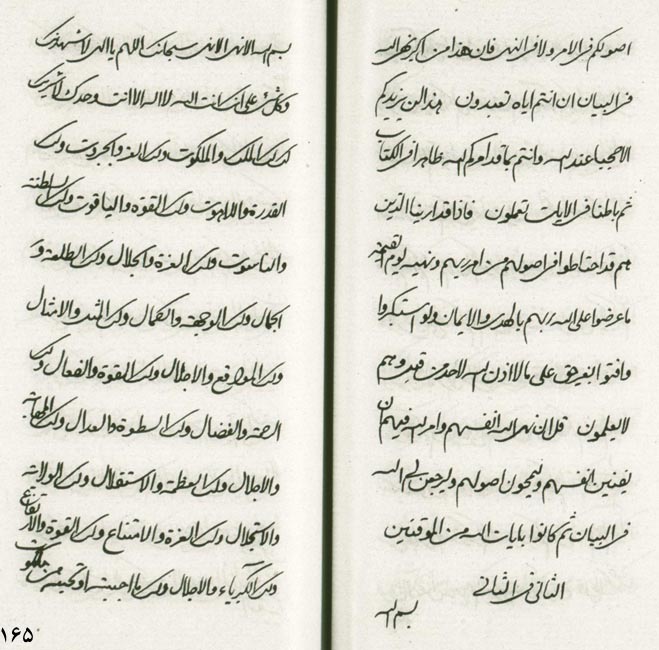 اصولكم فی الامر ولا فی النهی فان هذا من اکبر نهی الله
فی البیان ان انتم ایاه تعبدون هذا لن یزیدکم
الا حجبا عند الله وانتم بما قد امرکم الله ظاهرا فی الکتاب
ثم باطنا فی الایات تعملون فاذا قد ارینا الذین
هم قد احتاطوا فی اصولهم من امر ربهم ونهیه یوم القیمة
ما عرضوا علی الله ربهم بالهدی والایمان ولو استکبروا
وافتوا بغیر حق علی ما لا اذن الله لاحد من قبل وهم
لا یعلمون قل ان نهی الله انفسهم وامر الله فیهم ان
یفنین انفسهم ولیمحون اصولهم ولیرجعن الی الله
فی البیان ثم کانوا بایات الله من الموقنین
الثانی فی الثانی
بسم الله
بسم الله سبحانک اللهم یا الهی لاشهدنک
وکل شئ علی انک انت الله لا اله الا انت وحدک لا شریک
لک لک الملک والملکوت ولک العز والجبروت ولک
القدرة واللاهوت ولک القوة والیاقوت ولک السلطنة
والناسوت ولک العزة والجلال ولک الطلعة و
الجمال ولک الوجهة والکمال ولک المثل والامثال
ولک المواقع والاجلال ولک القوة والفعال ولک
الرحمة والفضال ولک السطوة والعدال ولک المهابة
والاجلال ولک العظمة والاستقلال ولک الولایة
والاستجلال ولک العزة والامتناع ولک القوة والارتفاع
ولک الکبریاء والاجلال ولک ما احببته او تحبنه من ملکوت
۱۶۵